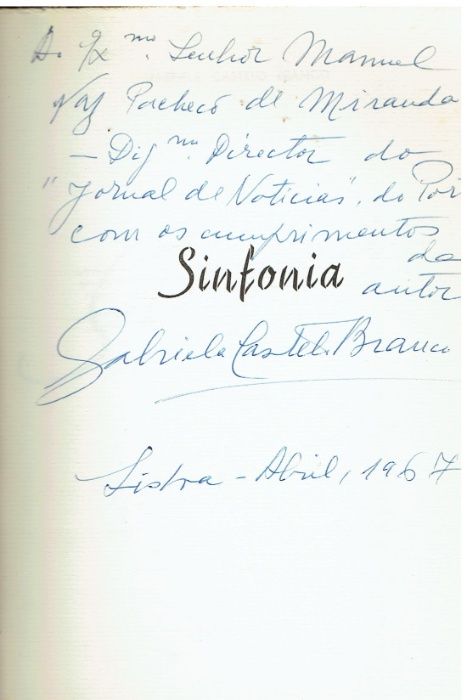 Ao Ex.mo Senhor Manuel
Vaz Pacheco de Miranda
— Dig.mo Director do
"Jornal de Noticias", do Por
com os cumprimentos
da
Sinfonia
autor
Gabriela Castelo Branco
Lisboa - Abril, 1967